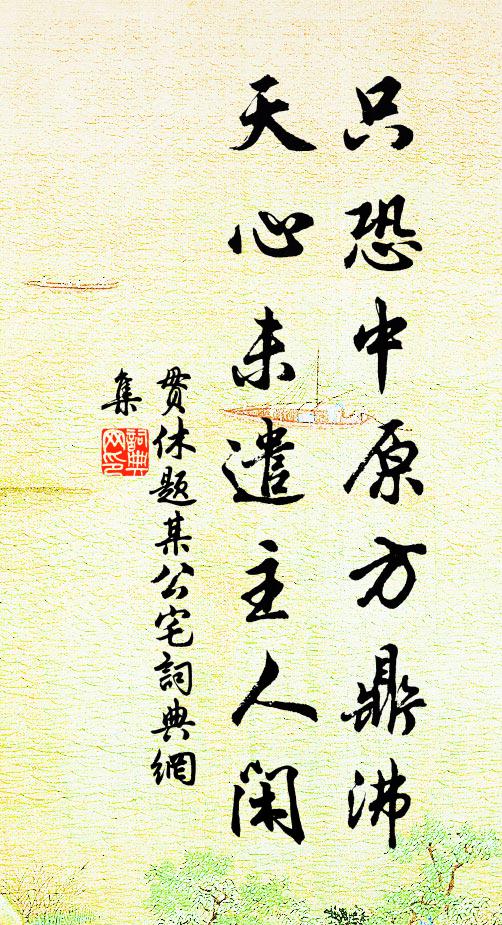 只恐中原方鼎沸
天心未遣主人閑
貫休題某公宅詞典網
集
詞典
网印